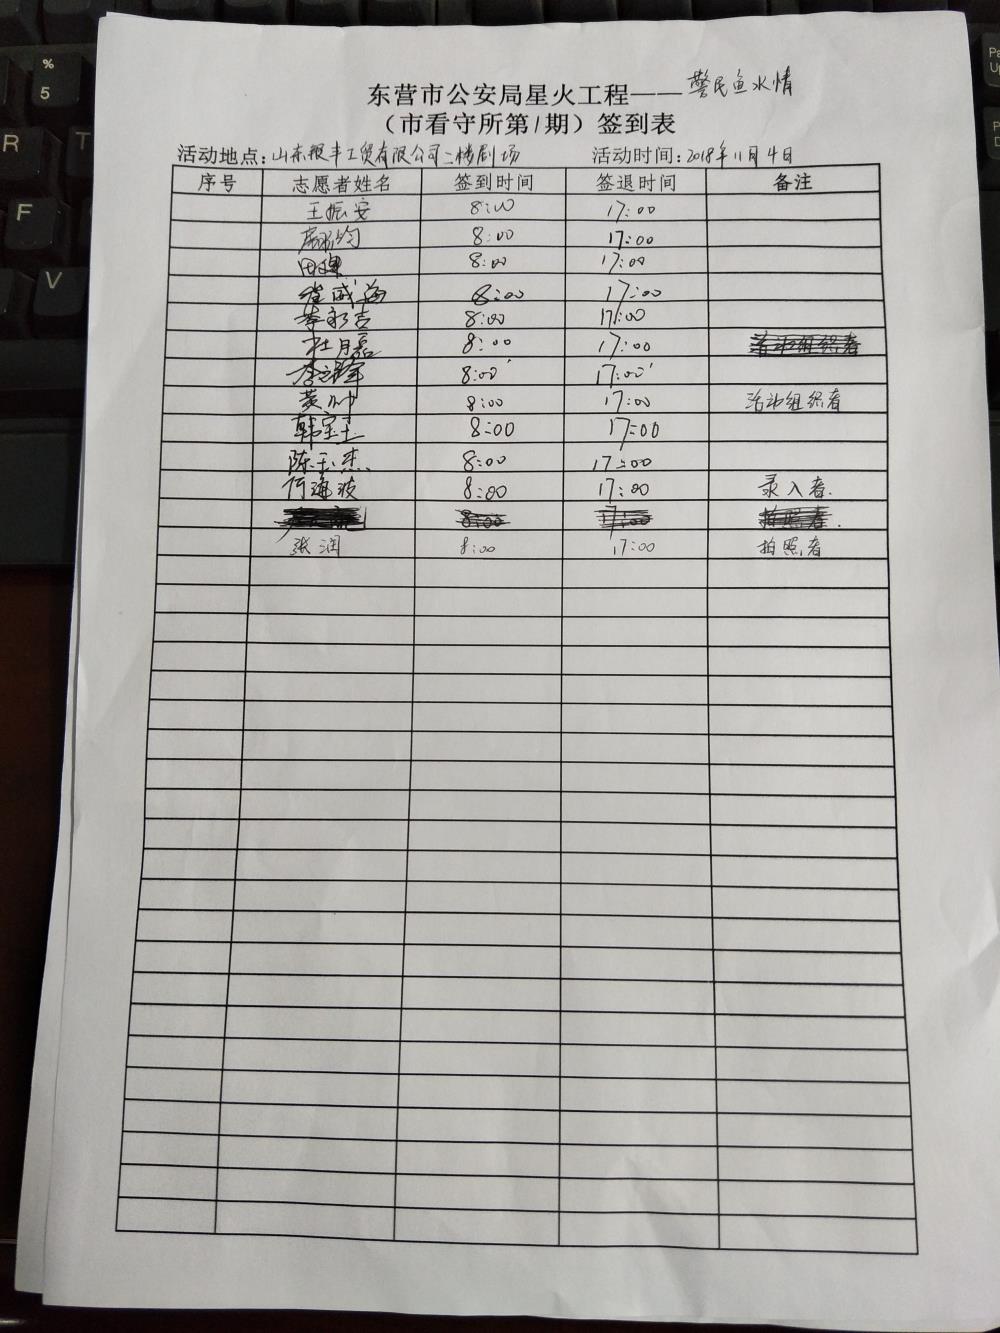 东营市公安局星火工程——警民鱼水情
（市看守所第1期）签到表
活动地点：山东银丰工贸有限公司二楼剧场 活动时间：2018年11月4日
序号 志愿者姓名 签到时间 签退时间 备注
王振安 8:00 17:00
8:00 17:00
8:00 17:00
崔威海 8:00 17:00
李永吉 8:00 17:00
杜月磊 8:00 17:00
8:00 17:00
黄帅 8:00 17:00 活动组织者
韩宝玉 8:00 17:00
陈玉杰 8:00 17:00
何海波 8:00 17:00 录入者.
8:00 17:00 拍照者.
张润 8:00 17:00 拍照者
%
5
R
T
F
V